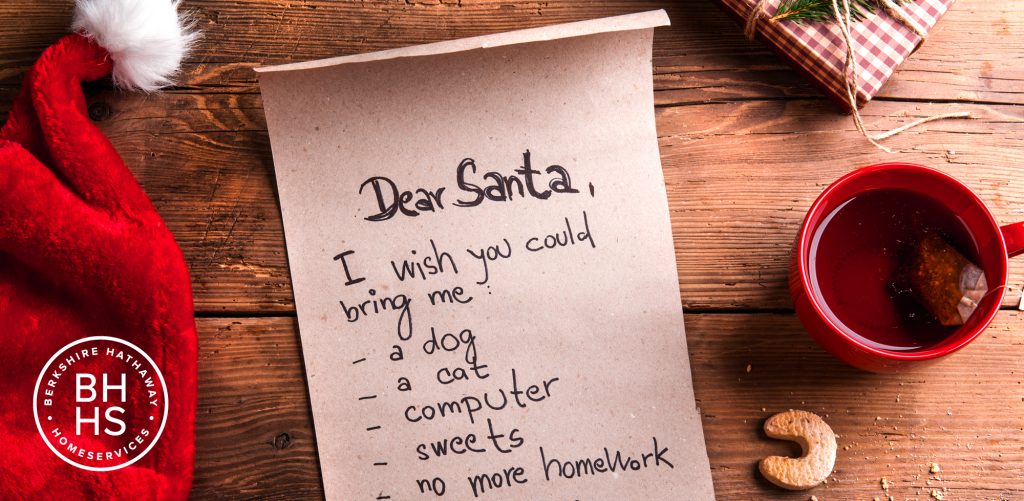 Dear Santa,
I wish you could
bring me:
- a dog
- a cat
- computer
- sweets
- no more homework
BERKSHIRE HATHAWAY
BH
HS
HOMESERVICES